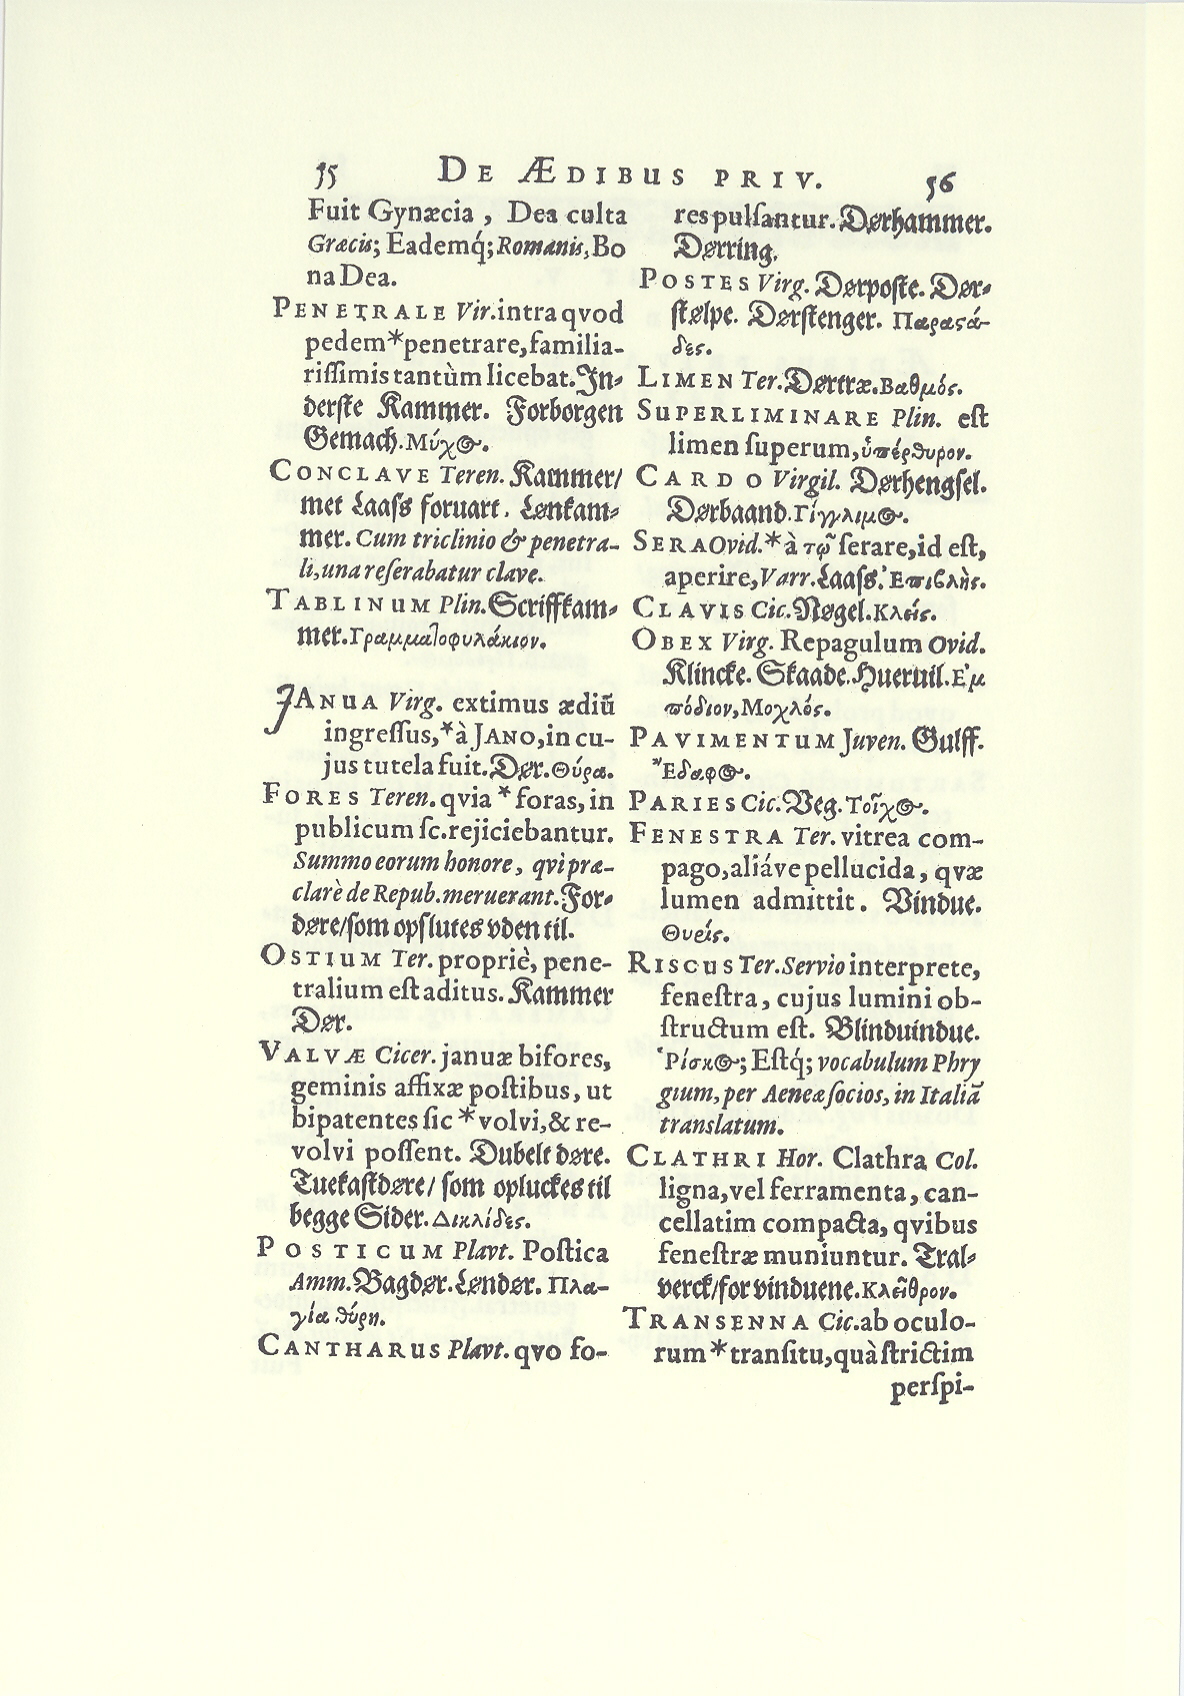 35 DE ÆDIBUS PRIV. 36
Fuit Gynæcia, Dea culta
Græcis; Eademq́; Romanis, Bo
na Dea.
PENETRALE Vir. intra qvod
pedem * penetrare, familia-
riſſimis tantùm licebat. In-
derſte Kammer. Forborgen
Gemach. Μύχος.
CONCLAVE Teren. Kammer/
met Laaſs foruart. Lønkam-
mer. Cum triclinio & penetra-
li, una reſerabatur clave.
TABLINUM Plin. Scriffkam-
mer. Γραμματοφυλάκιον.
JANUA Virg. extimus ædiū
ingreſſus, * à JANO, in cu-
jus tutela fuit. Dør. Θύρα.
FORES Teren. qvia * foras, in
publicum ſc. rejiciebantur.
Summo eorum honore, qvi præ-
clarè de Repub. meruerant. For-
døre/ ſom opſlutes vden til.
OSTIUM Ter. propriè, pene-
tralium eſt aditus. Kammer
Dør.
VALVÆ Cicer. januæ bifores,
geminis affixæ poſtibus, ut
bipatentes ſic * volvi, & re-
volvi poſſent. Dubelt døre.
Tuekaſtdøre/ ſom opluckes til
begge Sider. Δικλίδες.
POSTICUM Plavt. Poſtica
Amm. Bagdør. Løndør. Πλα-
γία θύρη.
CANTHARUS Plavt. qvo fo-
res pulſantur. Dørhammer.
Dørring.
POSTES Virg. Dørpoſte. Dør-
ſtølpe. Dørſtenger. Παραϛά-
δες.
LIMEN Ter. Dørtræ. Βαθμός.
SUPERLIMINARE Plin. eſt
limen ſuperum, ὑπέρθυρον.
CARDO Virgil. Dørhengſel.
Dørbaand. Γίγγλιμος.
SERA Ovid. * à τῷ ſerare, id eſt,
aperire, Varr. Laaſs. Ἐπιβλὴς.
CLAVIS Cic. Nøgel. Κλείς.
OBEX Virg. Repagulum Ovid.
Klincke. Skaade. Hueruil. Ἐμ
πόδιον, Μοχλός.
PAVIMENTUM Juven. Gulff.
Ἔδαφος.
PARIES Cic. Veg. Τοῖχος.
FENESTRA Ter. vitrea com-
pago, aliáve pellucida, qvæ
lumen admittit. Vindue.
Θυείς.
RISCUS Ter. Servio interprete,
feneſtra, cujus lumini ob-
ſtructum eſt. Blinduindue.
Ῥίσκος; Eſtq́; vocabulum Phry
gium, per Aeneæ ſocios, in Italiā
translatum.
CLATHRI Hor. Clathra Col.
ligna, vel ferramenta, can-
cellatim compacta, qvibus
feneſtræ muniuntur. Tral-
verck/ for vinduene. Κλεῖθρον.
TRANSENNA Cic. ab oculo-
rum * tranſitu, quà ſtrictim
perſpi-